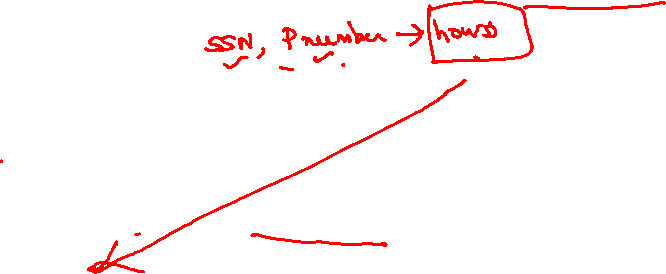 SSN, Pnumber → hours